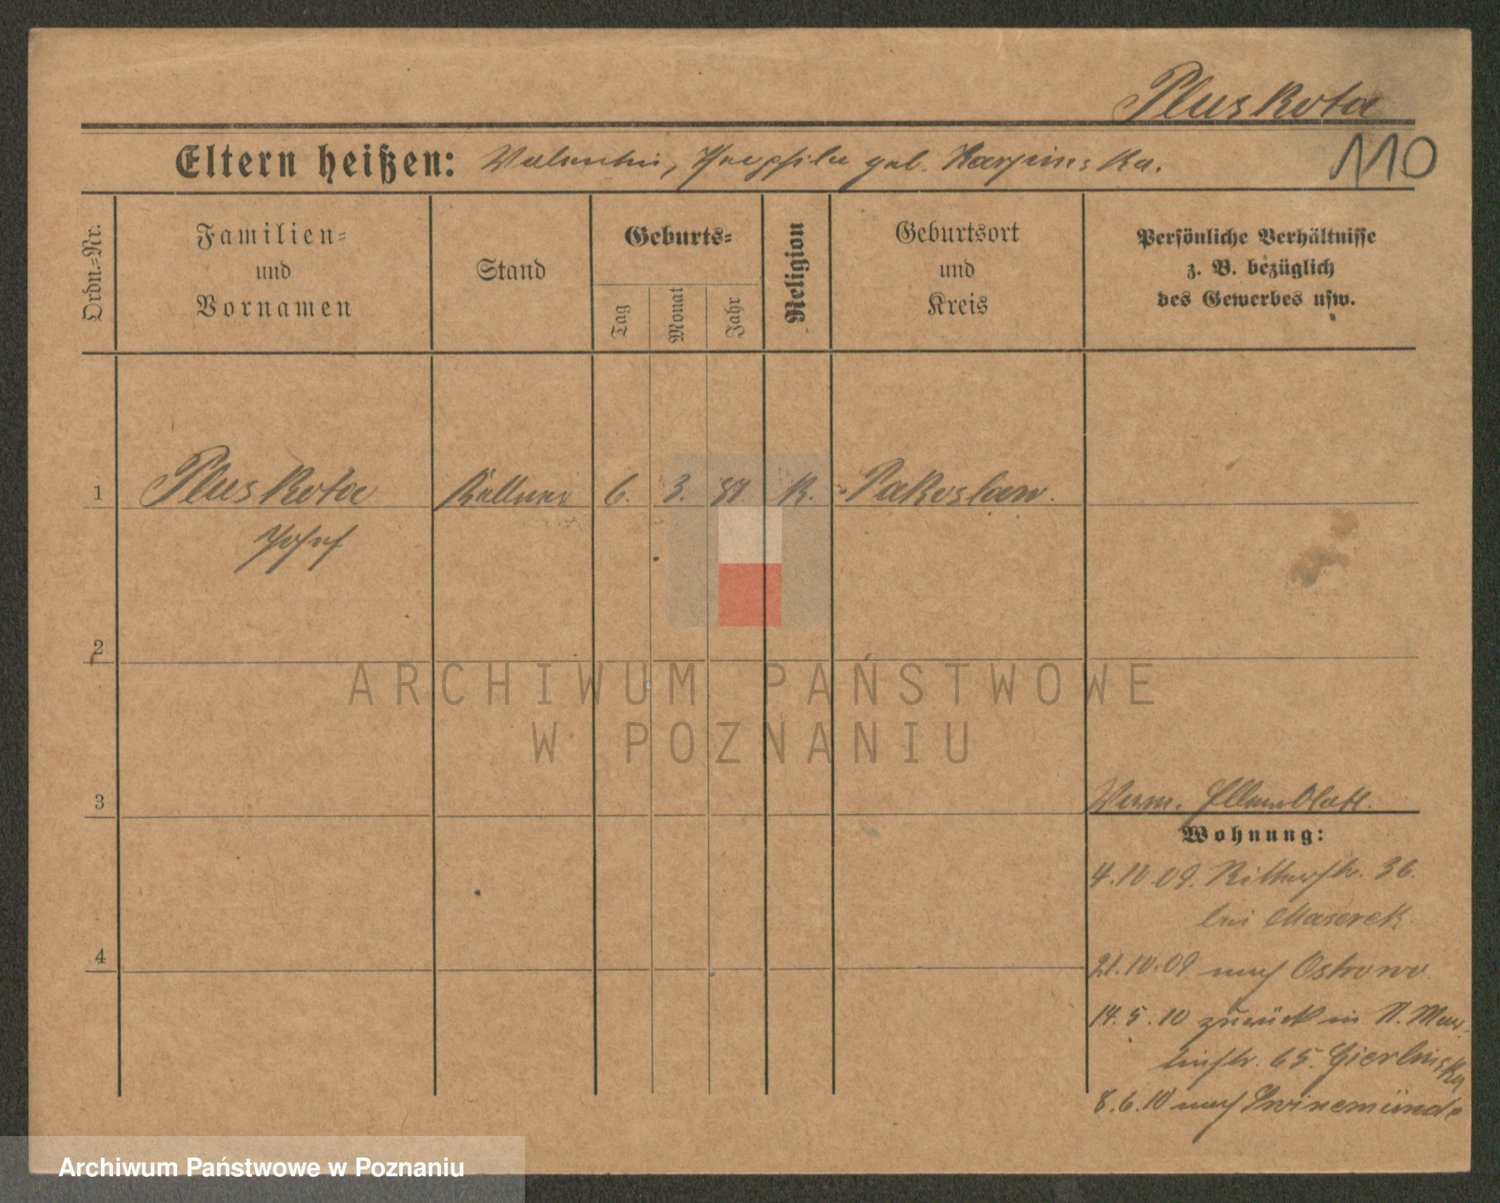 Pluskota
110
Eltern heißen: Valentin, geb. Karpinska.
Ordn.=Nr.
Familien=
und
Vornamen
Stand
Geburts=
Tag
Monat
Jahr
Religion
Geburtsort
und
Kreis
Persönliche Verhältnisse
z. B. bezüglich
des Gewerbes usw.
1 Pluskota Kellner 6. 3. K. Pakoslaw.
Josef
2
ARCHIWUM PAŃSTWOWE
W POZNANIU
3
Wohnung:
4.10.09. Ritterstr. 36.
bei
4
21.10.09 nach Ostrowo
14.5.10 zurück in Mar
tinstr. 65. Gierlinska
8.6.10 nach Swinemünde
Archiwum Państwowe w Poznaniu